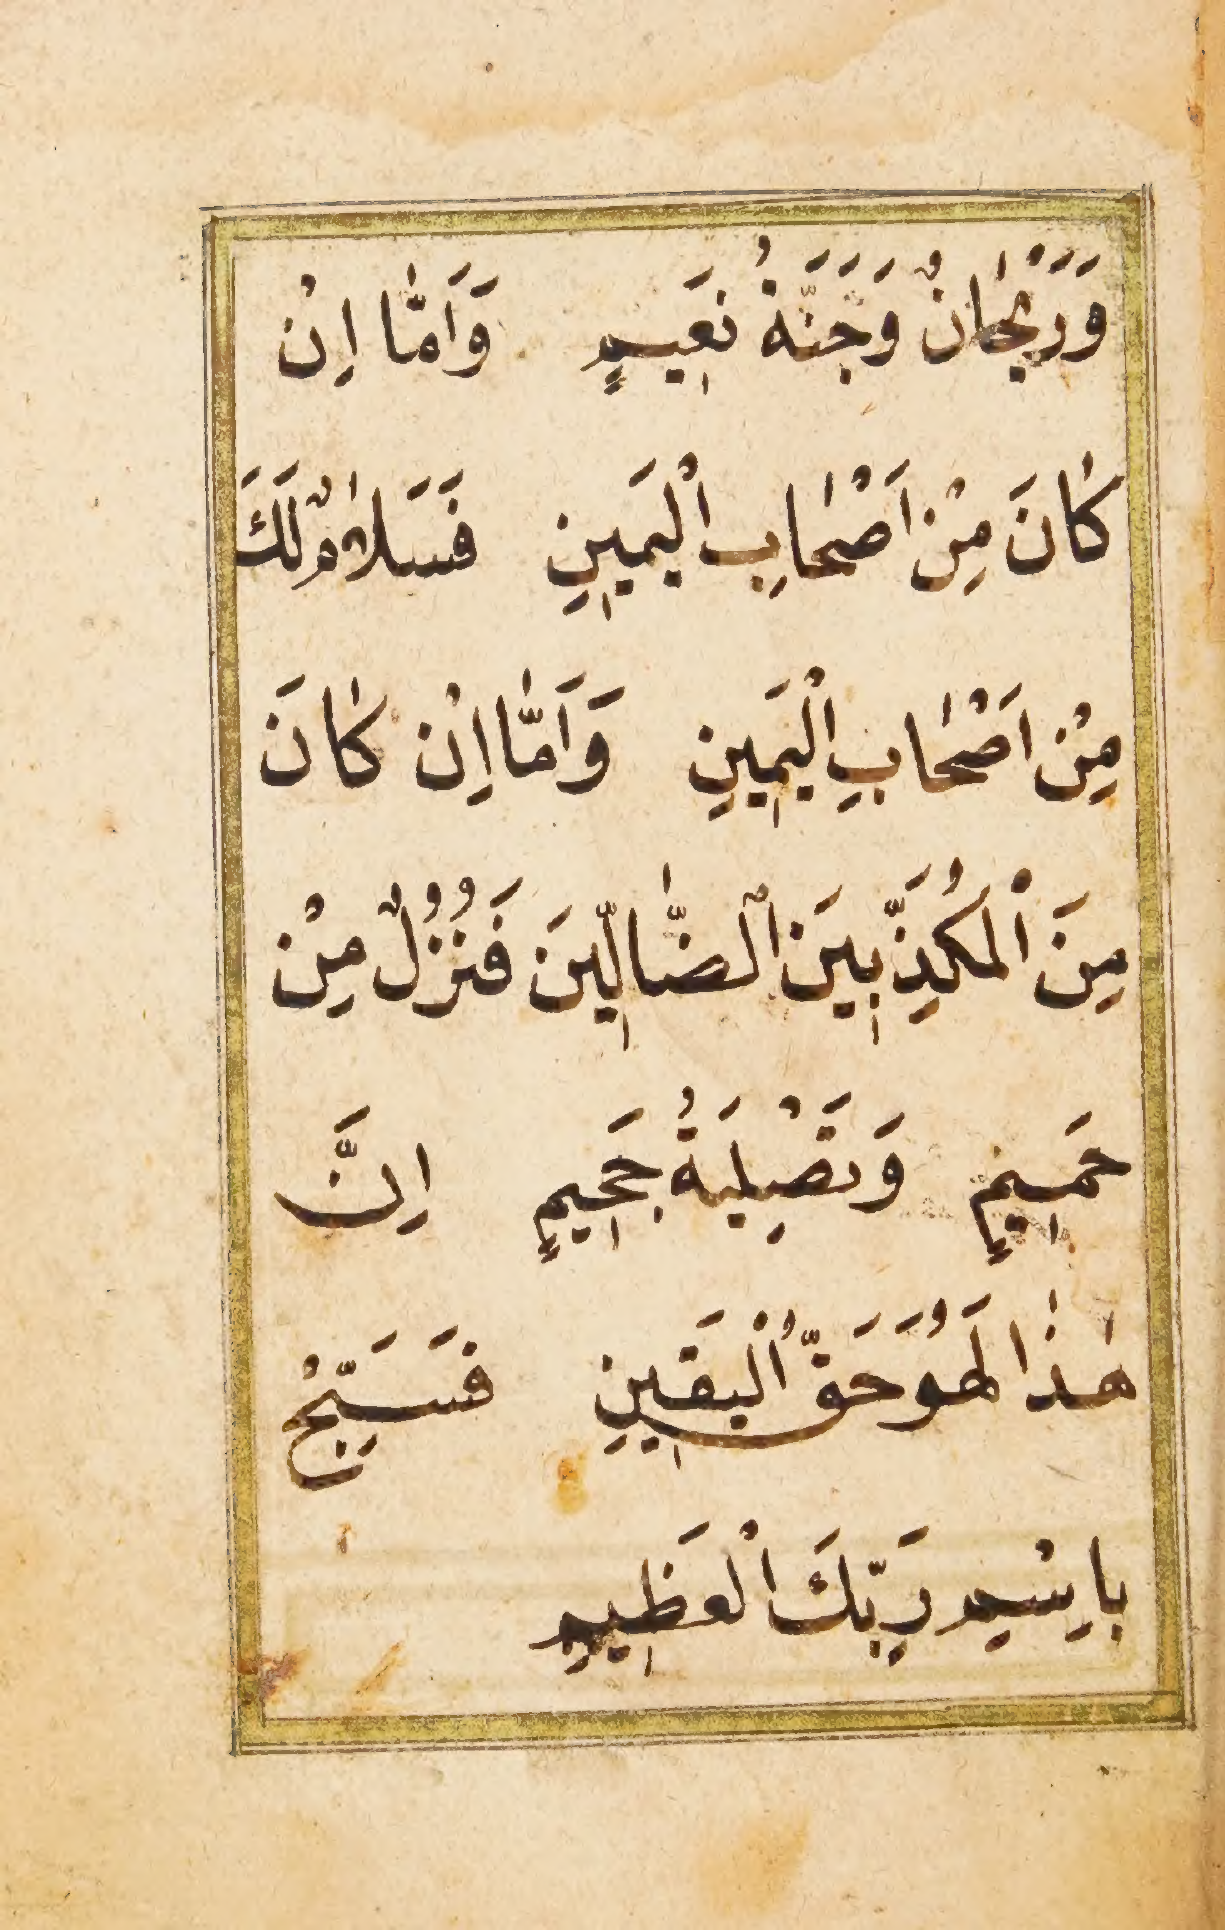 وَرَيْحَانٌ وَجَنَّةُ نَعِيمٍ وَاَمَّا اِنْ
كَانَ مِنْ اَصْحَابِ الْيَمِينِ فَسَلَامٌ لَكَ
مِنْ اَصْحَابِ الْيَمِينِ وَاَمَّا اِنْ كَانَ
مِنَ الْمُكَذِّبِينَ الضَّالِّينَ فَنُزُلٌ مِنْ
حَمِيمٍ وَتَصْلِيَةُ جَحِيمٍ اِنَّ
هٰذَا لَهُوَ حَقُّ الْيَقِينِ فَسَبِّحْ
بِاسْمِ رَبِّكَ الْعَظِيمِ